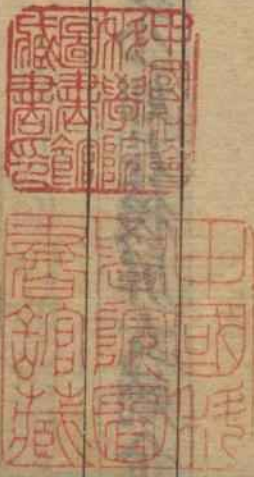 中國
科學院
圖書館
藏書印
中國科
學院圖
書館藏